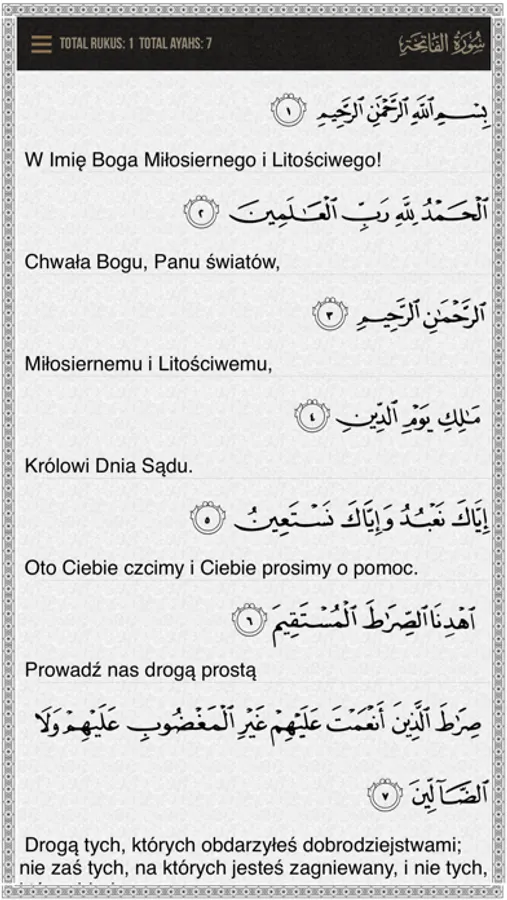 TOTAL RUKUS: 1 TOTAL AYAHS: 7
سُورَةُ الفَاتِحَة
بِسْمِ ٱللَّهِ ٱلرَّحْمَٰنِ ٱلرَّحِيمِ ١
W Imię Boga Miłosiernego i Litościwego!
ٱلْحَمْدُ لِلَّهِ رَبِّ ٱلْعَٰلَمِينَ ٢
Chwała Bogu, Panu światów,
ٱلرَّحْمَٰنِ ٱلرَّحِيمِ ٣
Miłosiernemu i Litościwemu,
مَٰلِكِ يَوْمِ ٱلدِّينِ ٤
Królowi Dnia Sądu.
إِيَّاكَ نَعْبُدُ وَإِيَّاكَ نَسْتَعِينُ ٥
Oto Ciebie czcimy i Ciebie prosimy o pomoc.
ٱهْدِنَا ٱلصِّرَٰطَ ٱلْمُسْتَقِيمَ ٦
Prowadź nas drogą prostą
صِرَٰطَ ٱلَّذِينَ أَنْعَمْتَ عَلَيْهِمْ غَيْرِ ٱلْمَغْضُوبِ عَلَيْهِمْ وَلَا
ٱلضَّآلِّينَ ٧
Drogą tych, których obdarzyłeś dobrodziejstwami;
nie zaś tych, na których jesteś zagniewany, i nie tych,